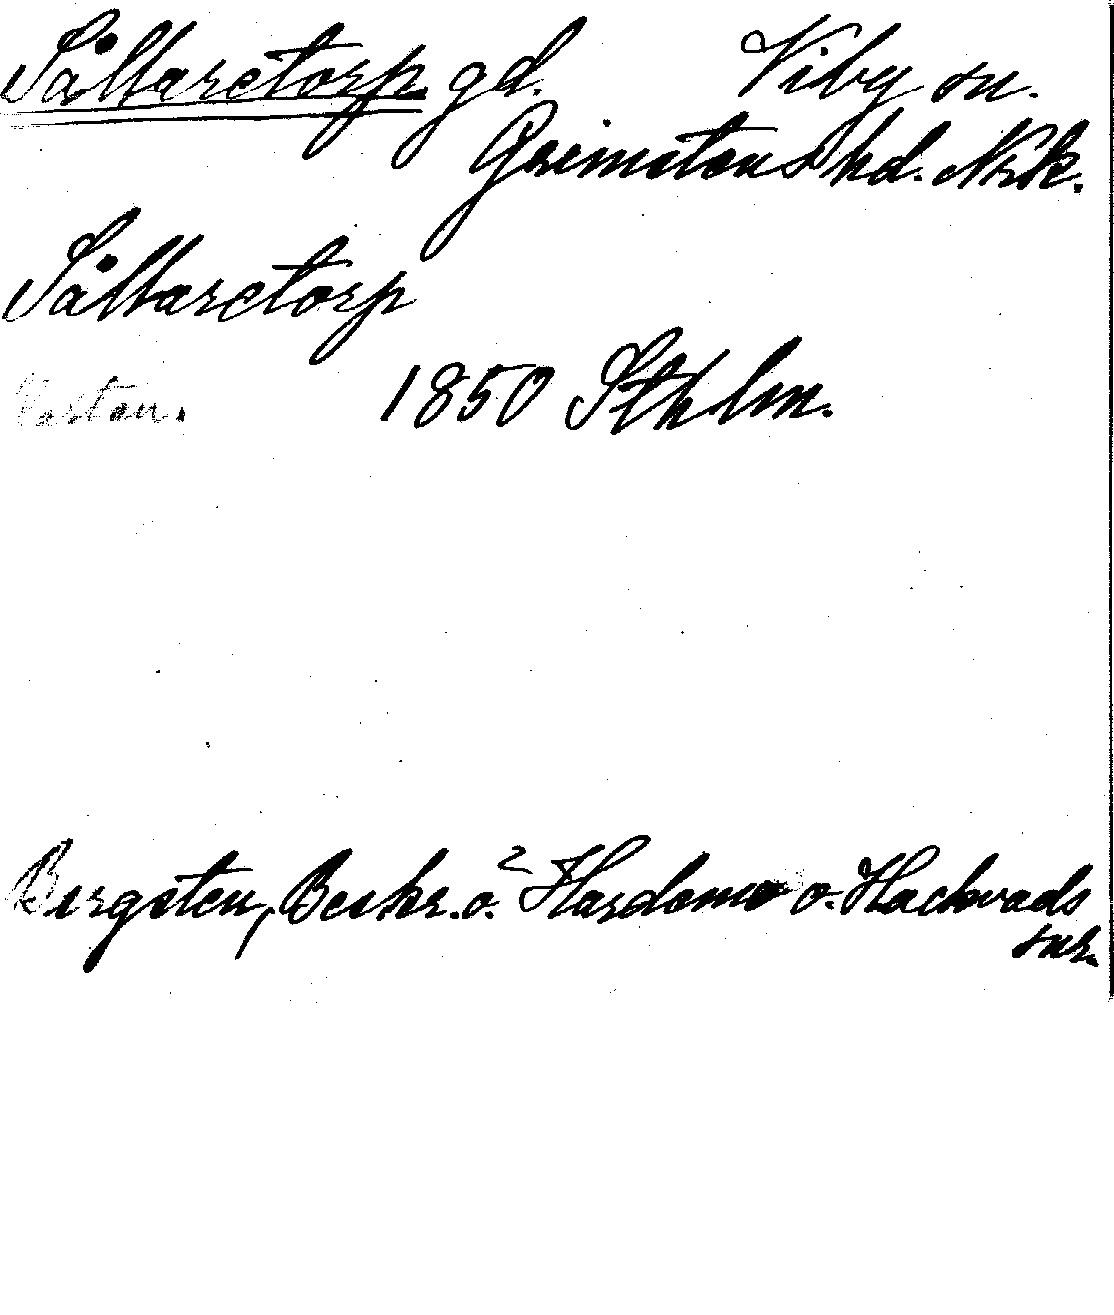 Sållarstorp gd. Viby sn.
Grimstens hd. Nrk.
Sållarstorp
1850 Sthlm.
Bergsten, Beskr. o. Hardemo o. Hackvads
snr.